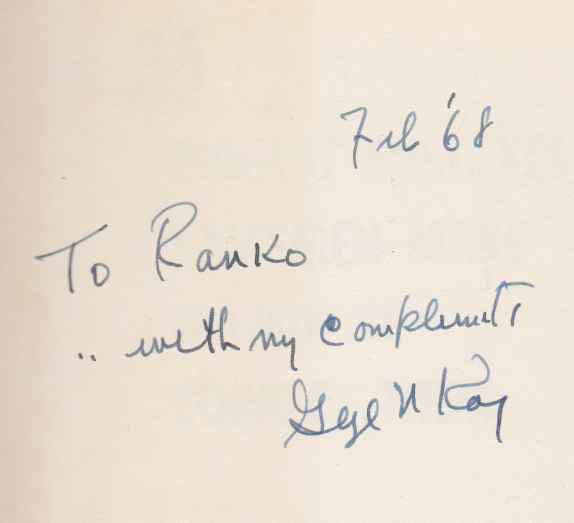 Feb '68
To Ranko
.. with my compliments
N Kay